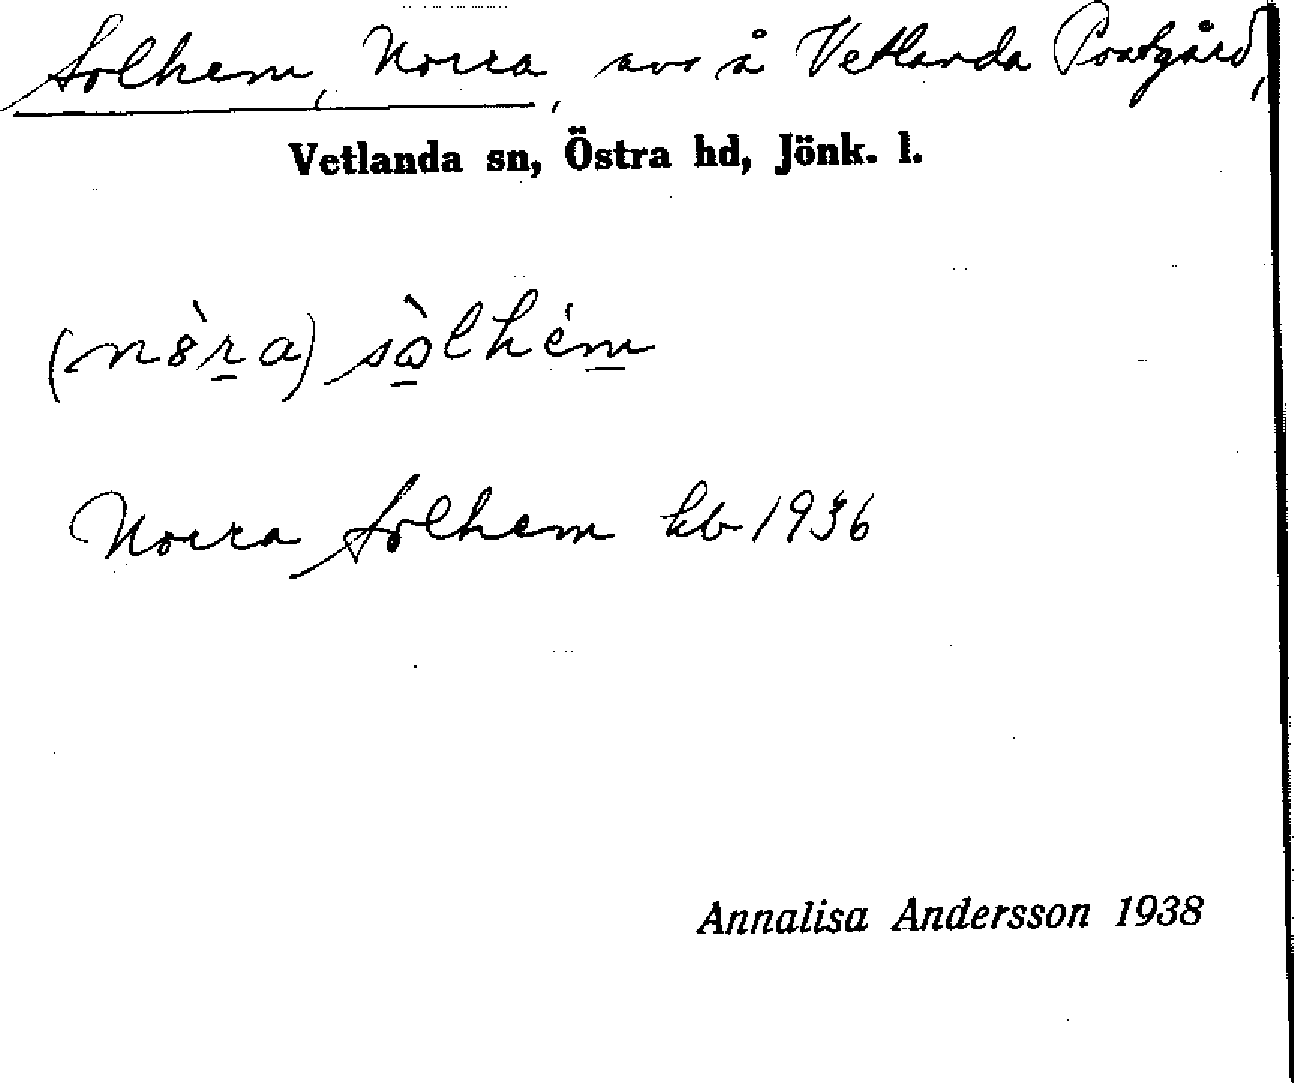 Solhem, Norra, avs å Vetlanda Prostgård,
Vetlanda sn, Östra hd, Jönk. l.
(n8̀r̲a) sò̲lhém̲
Norra Solhem kb 1936
Annalisa Andersson 1938